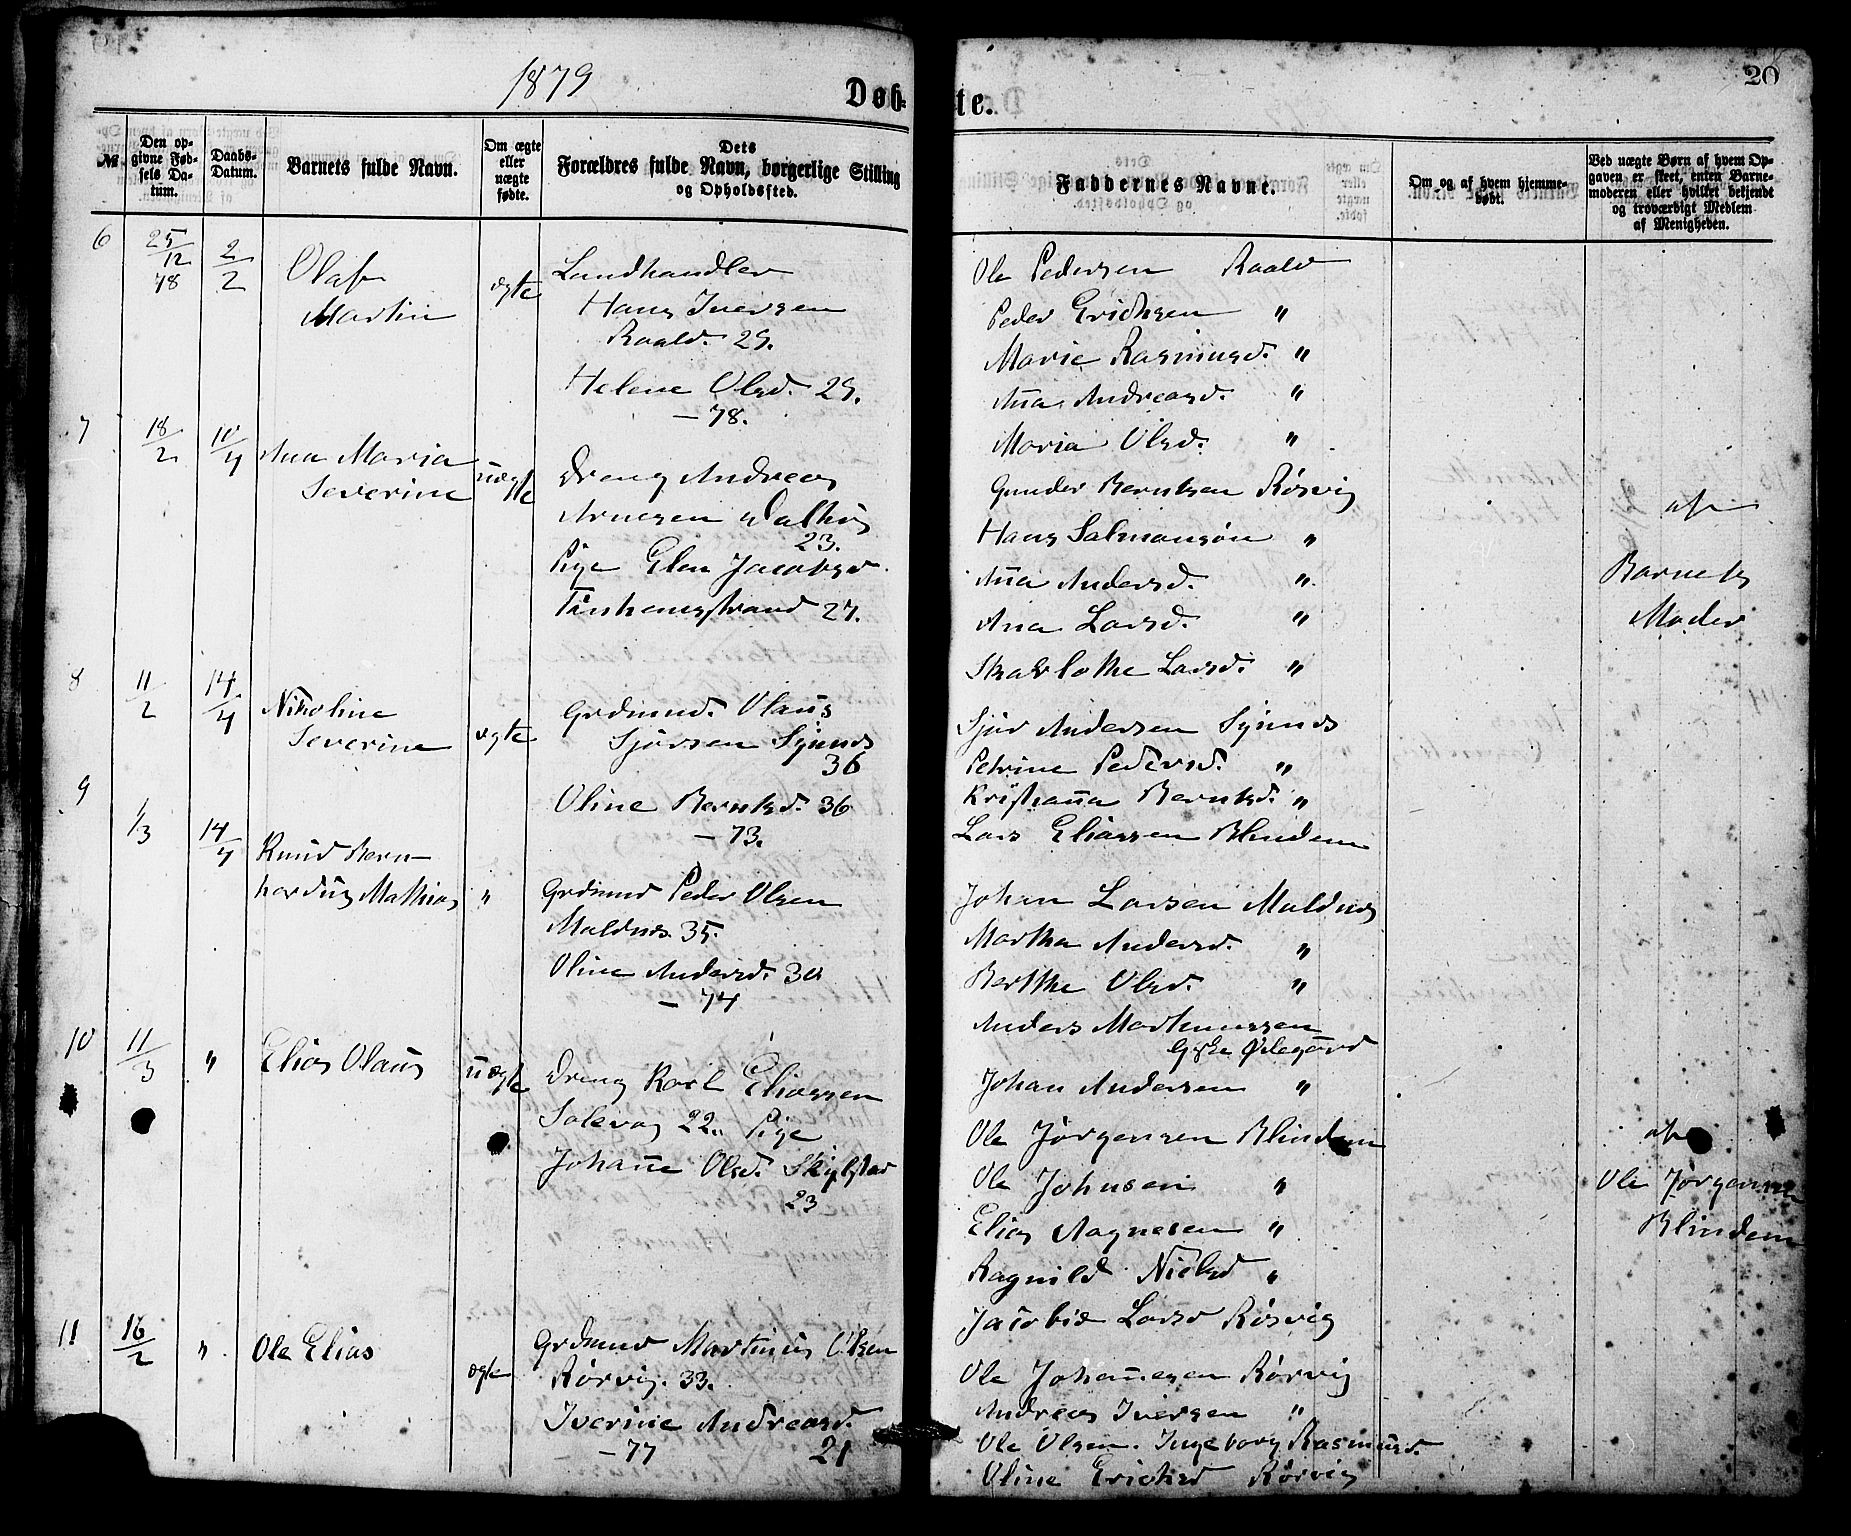 1879
Døb-
te.
20
№
Den op-
givne Fød-
sels Da-
tum.
Daabs-
Datum.
Barnets fulde Navn.
Om ægte
eller
uægte
fødte.
Dets
Forældres fulde Navn, borgerlige Stilling
og Opholdssted.
Faddernes Navne.
Om og af hvem hjemme-
døbt.
Ved uægte Børn af hvem Op-
gaven er skeet, enten Barne-
moderen eller hvilket bekjendt
og troværdigt Medlem
af Menigheden.
6
25/12 78
2/2
Olaf
Martin
ægte
Landhandler
Hans Iversen
Roald. 29.
Helene Olsd. 29.
– 78.
Ole Pedersen Roald
Peder Erichsen "
Marie Rasmusd. "
Ana Andreasd. "
Maria Olsd. "
7
18/2
10/4
Ana Maria
Severine
uægte
Dreng Andreas
Arnesen
23.
Pige Elen Jacobsd.
27.
Gunder Berntsen Rörvig
Hans Salmonsøn "
Ana Andersd. "
Ana Larsd. "
Larsd. "
af
Barnets
Moder
8
11/2
14/4
Nikoline
Severine
ægte
Grdmnd. Olaus
Sjursen Synnes
36
Oline Berntsd. 36
– 73.
Sjur Andersen Synnes
Petrine Pedersd. "
Kristiana Berntsd. "
Lars Eliassen Blindem
9
1/3
14/4
Knud Bern-
hardus Mathias
"
Grdmnd Peder Olsen
Moldnes. 35.
Oline Andersd. 30
– 74
Johan Larsen Moldnes
Martha Andersd. "
Berthe Olsd. "
Anders
Giske
Johan Andersen "
10
11/3
"
Elias Olaus
uægte
Dreng Karl Eliassen
Solevog 22. Pige
Johane Olsd. Skylstad
23
Ole Jörgensen Blindem
Ole Johnsen "
Elias "
Ragnild Nielsd "
Larsd Rörvig
af
Ole Jörgensen
Blindem
11
16/2
"
Ole Elias
ægte
Grdmnd Martinus Olsen
Rörvig. 33.
Iverine Andreasd.
– 77 21
Ole Johanesen Rörvig
Andreas Iversen "
Ole Olsen. Ingeborg Rasmusd.
Oline Erichsd Rörvig